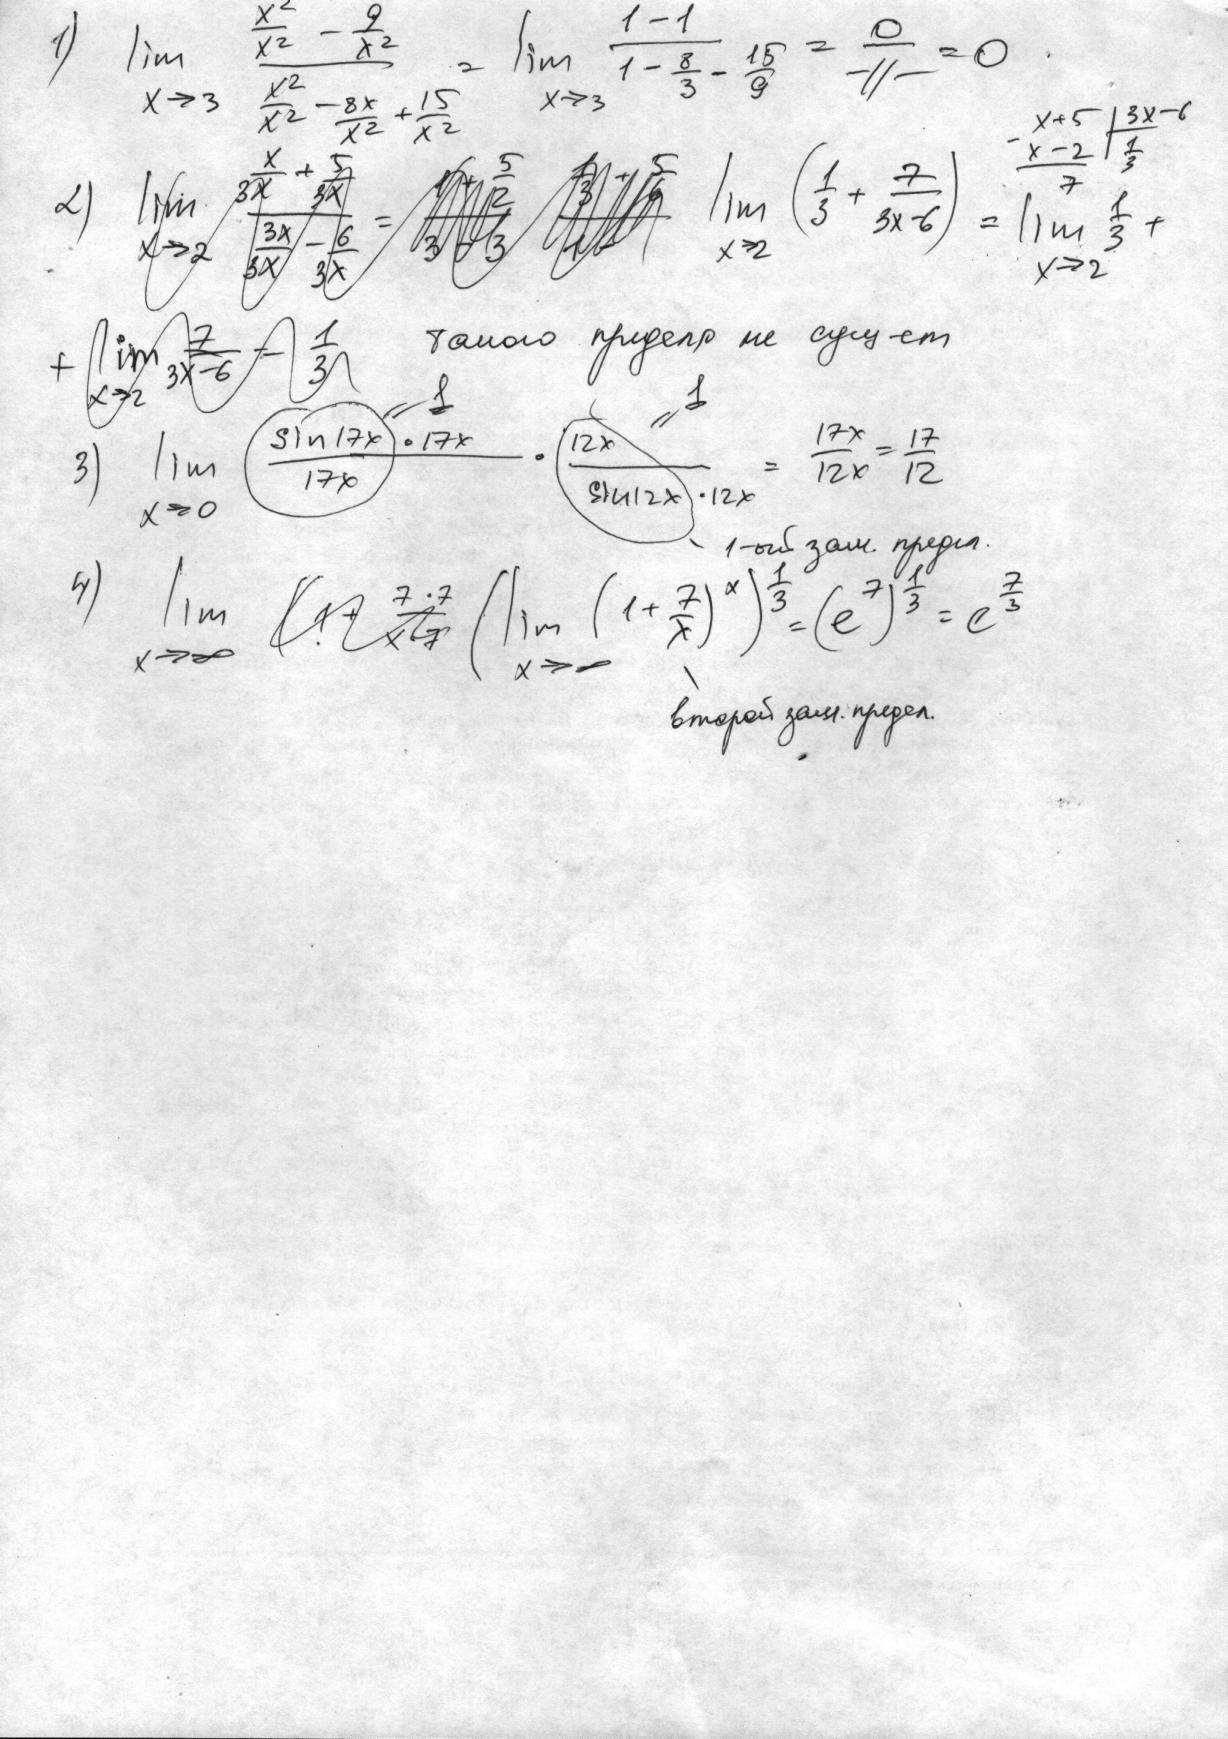 1) lim x→3 (x²/x² − 9/x²)/(x²/x² − 8x/x² + 15/x²) = lim x→3 (1−1)/(1 − 8/3 − 15/9) = 0/−//− = 0
x+5 | 3x−6
x−2 | 1/3
7
2) lim x→2 (x/3x + 5/3x)/(3x/3x − 6/3x) = lim x→2 (1/3 + 7/(3x−6)) = lim x→2 1/3 +
+ lim x→2 7/(3x−6) − 1/3 такого придела не сущ-ет
3) lim x→0 (sin17x · 17x)/17x · 12x/(sin12x · 12x) = 17x/12x = 17/12
"1 "1
1-ый зам. предел.
4) lim x→∞ (lim x→∞ (1 + 7/x)^x)^(1/3) = (e^7)^(1/3) = e^(7/3)
второй зам. предел.